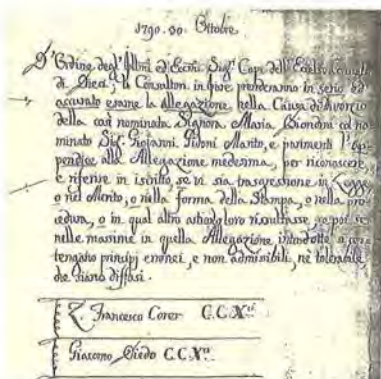 1790. 30. Ottobre.
D'Ordine degl'Illmi ed Eccmi Sigri Capi dell'Eccelso Consº
di Dieci; li Consultori in Jure prenderanno in serio, ed
accurato esame la Allegazione nella Causa di divorzio
della così nominata Signora Maria Biondini col no-
minato Sigr Giovanni Pidoni Marito, e parimenti l'Ap-
pendice alla Allegazione medesima, per riconoscere,
e riferire in iscritto, se vi sia trasgressione in Legge,
o nel Merito, o nella forma della Stampa, o nella pro-
cedura, o in qual altro articolo risultasse, e poi se
nelle massime in quella Allegazione introdotte, si con-
tengano principj erronei, e non admissibili, nè tolerabili
che siano diffusi.
Z. Francesco Corer C.C.Xci
Giacomo Diedo C.C.Xci